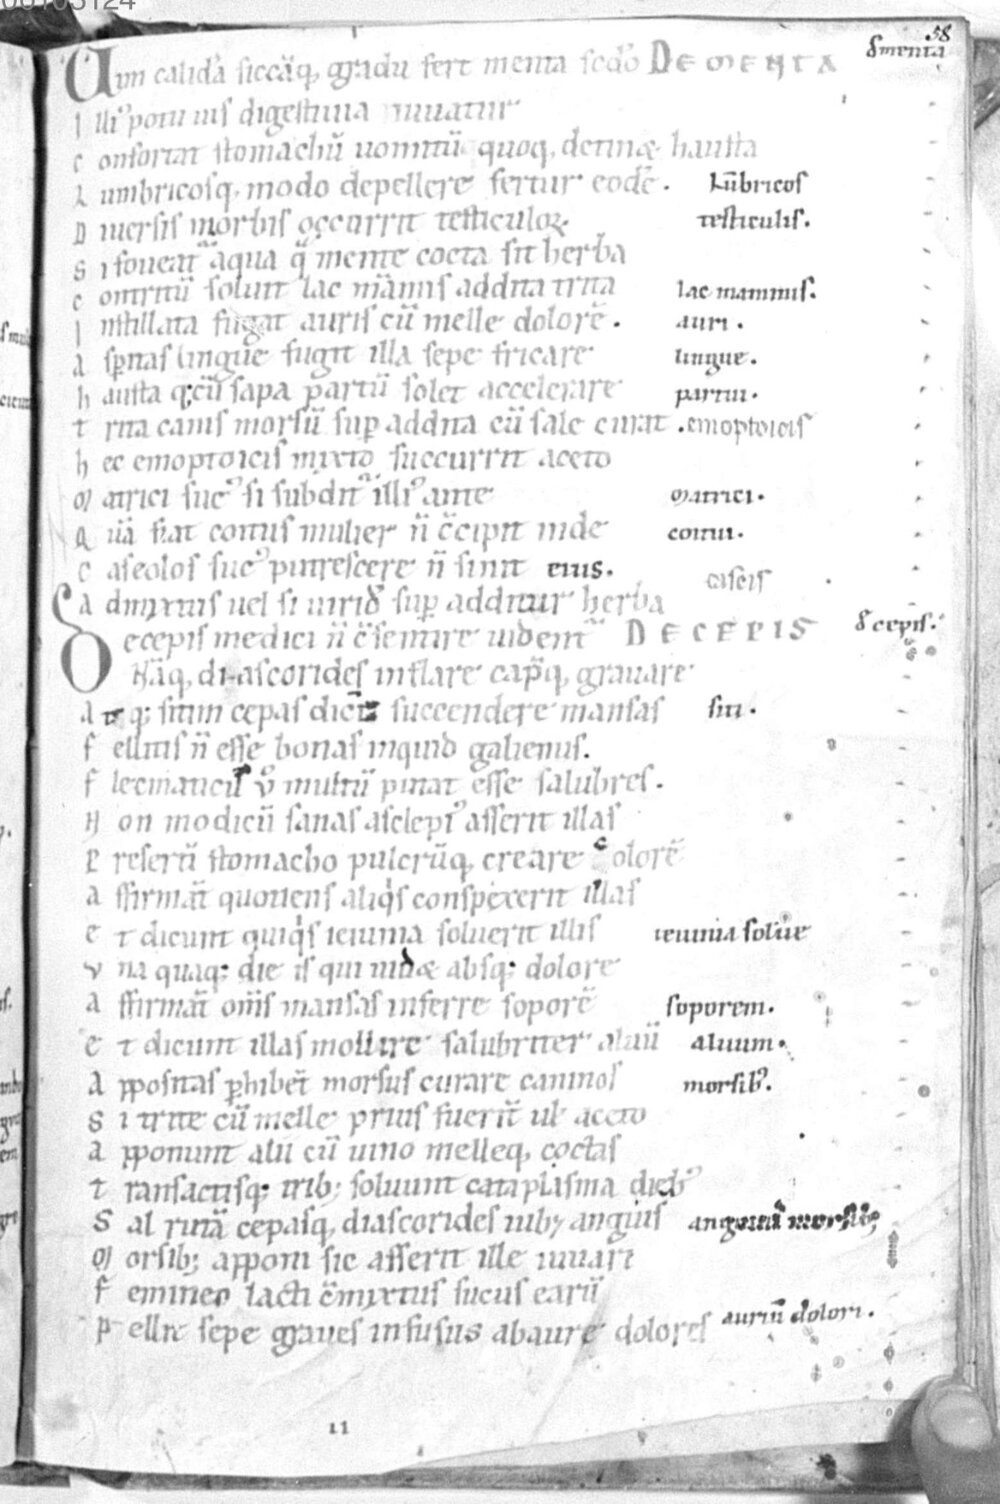 58
Vim calidā siccāq, gradu fert menta scdō DE MENTA đ menta
Illi᾽ potu uis digestiua iuuatur
Confortat stomachū uomitū quoq, detinæ hausta
Lumbricosq, modo depellere fertur eodē. Lūbricos
Diuersis morbis occurrit testiculoꝝ testiculis.
Si foueāt᷑ aqua q̄ mente cocta sit herba
Contritū soluit lac māmis addita trita lac mammis.
Instillata fugat auris cū melle dolorē. auri.
Asp̱itas lingue fugit illa sepe fricare lingue.
Hausta q; cū sapa partū solet accelerare partui.
Trita canis morsū sup̱ addita cū sale curat. emoptoicis
Hec emoptoicis mixto succurrit aceto
Matrici suc᾽ si subdit᷑ illi᾽ ante Matrici.
Quā fiat coitus mulier n̄ c̄cipit inde coitui.
Caseolos suc᾽ putrescere n̄ sinit eius.
caseis
Admixtus uel si uirid᾽ sup̱ additur herba
De cepis medici n̄ c̄sentire uident᷑ DE CEPIS đ cepis.
Nāq, diascorides inflare cap̄q, grauare
Atq; sitim cepas dicit succendere mansas siti.
Fellitis n̄ esse bonas inquid galienus.
Flecmaticis ů multū putat esse salubres.
Non modicū sanas asclepi᾽ asserit illas
Presertū stomacho pulcrūq, creare colorē
Affirmāt quotiens aliqͥs conspexerit illas
Et dicunt quiqͥs ieiunia soluerit illis ieiunia solue
Vna quaq; die is qui uidæ absq; dolore
Affirmāt om̄is mansas inferre soporē soporem.
Et dicunt illas mollire salubriter aluū aluum.
Appositas p̱hibēt morsus curare caninos morsib᾽.
Si trite cū melle prius fuerīt uł aceto
Apponunt alii cū uino melleq, coctas
Transactisq; trib; soluunt cataplasma dieb᾽
Sal rutā cepasq, diascorides iub; anguis
Morsib; apponi sic asserit ille iuuari
Femineo lacti c̄mixtus sucus earū
Pellit sepe graues infusus ab aure dolores auriū dolori.
11